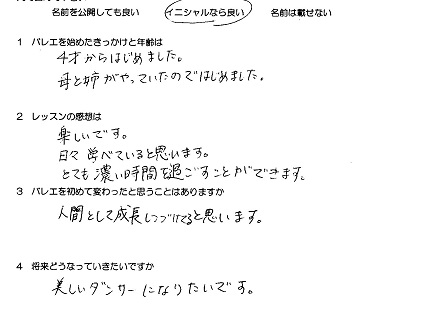 名前を公開しても良い イニシャルなら良い 名前は載せない
1 バレエを始めたきっかけと年齢は
4才からはじめました。
母と姉がやっていたのではじめました。
2 レッスンの感想は
楽しいです。
日々学べていると思います。
とても濃い時間を過ごすことができます。
3 バレエを初めて変わったと思うことはありますか
人間として成長しつづけてると思います。
4 将来どうなっていきたいですか
美しいダンサーになりたいです。